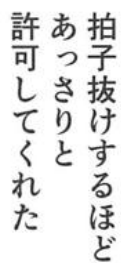 拍子抜けするほど
あっさりと
許可してくれた